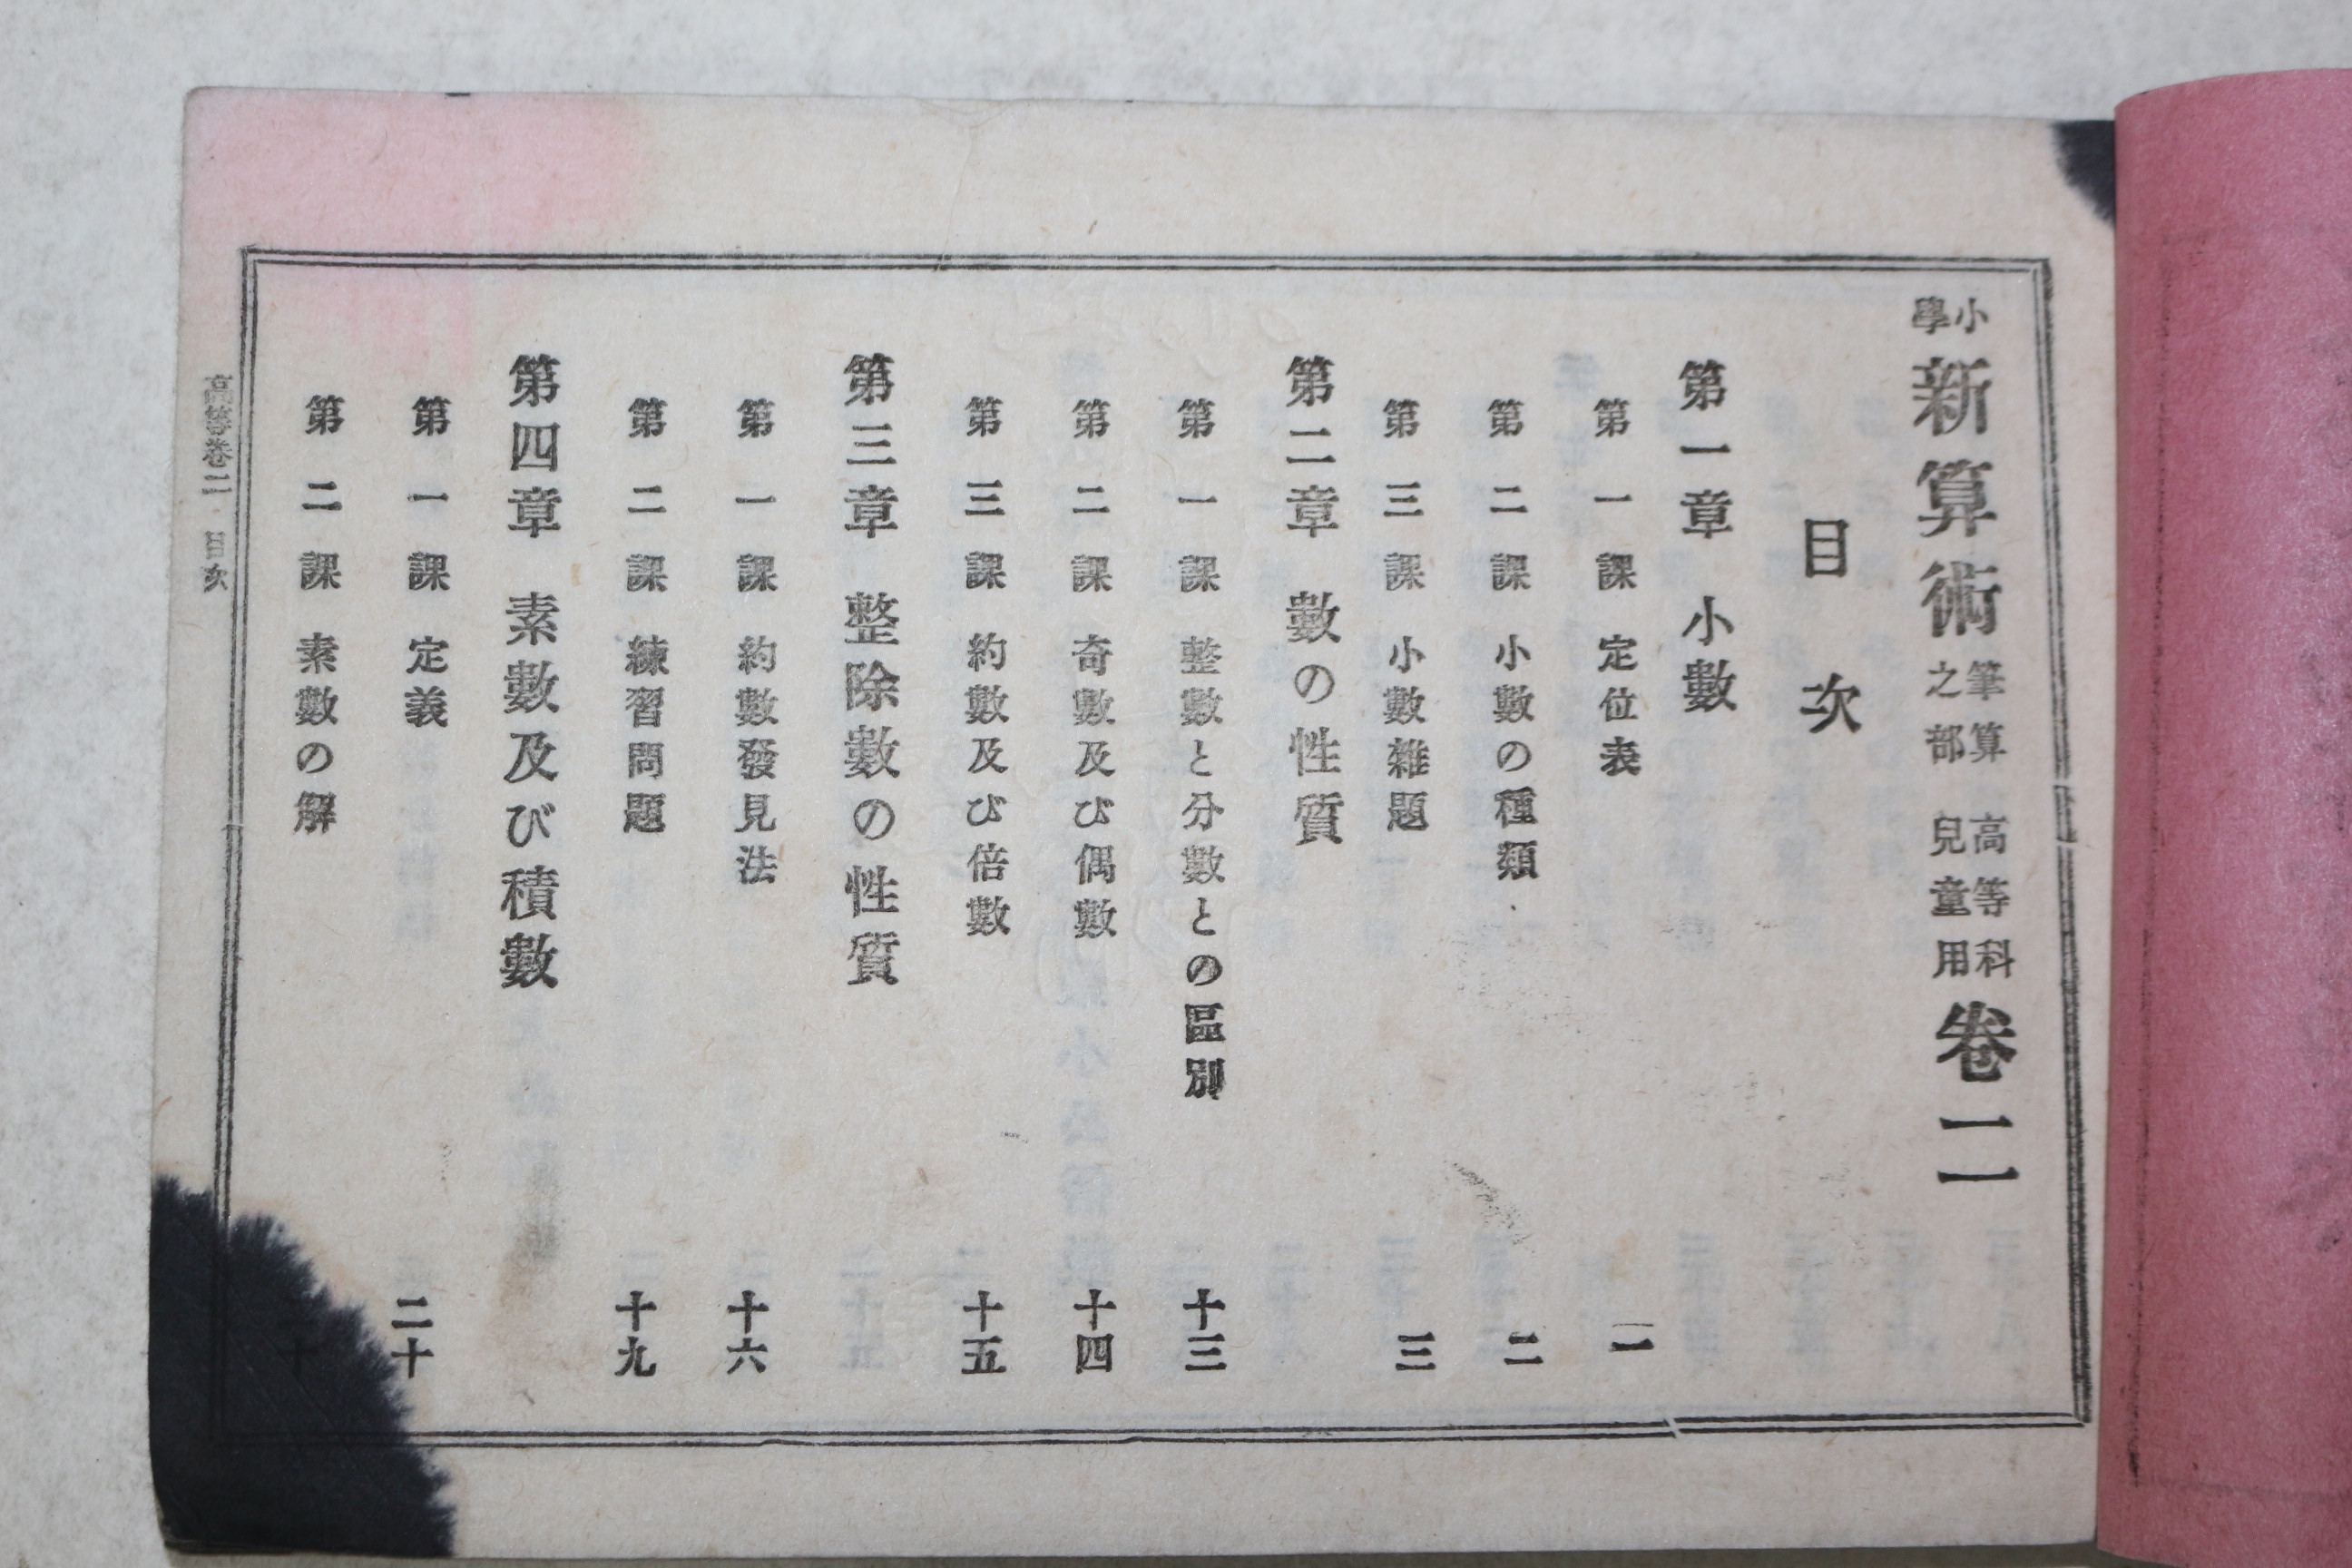 小學新算術筆算之部高等科兒童用卷二
目次
第一章 小數
第一課 定位表 一
第二課 小數の種類 二
第三課 小數雜題 三
第二章 數の性質
第一課 整數と分數との區別 十三
第二課 奇數及び偶數 十四
第三課 約數及び倍數 十五
第三章 整除數の性質
第一課 約數發見法 十六
第二課 練習問題 十九
第四章 素數及び積數
第一課 定義 二十
第二課 素數の解
高等卷二 目次